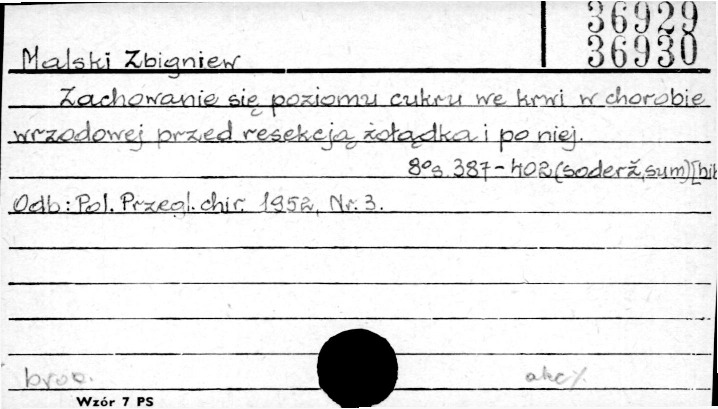 36929
36930
Malski Zbigniew
Zachowanie się poziomu cukru we krwi w chorobie
wrzodowej przed resekcją żołądka i po niej.
8º s. 387-402 (soderž, sum) [bib
Odb: Pol. Przegl. chir. 1952, Nr. 3.
bros. akc
Wzór 7 PS